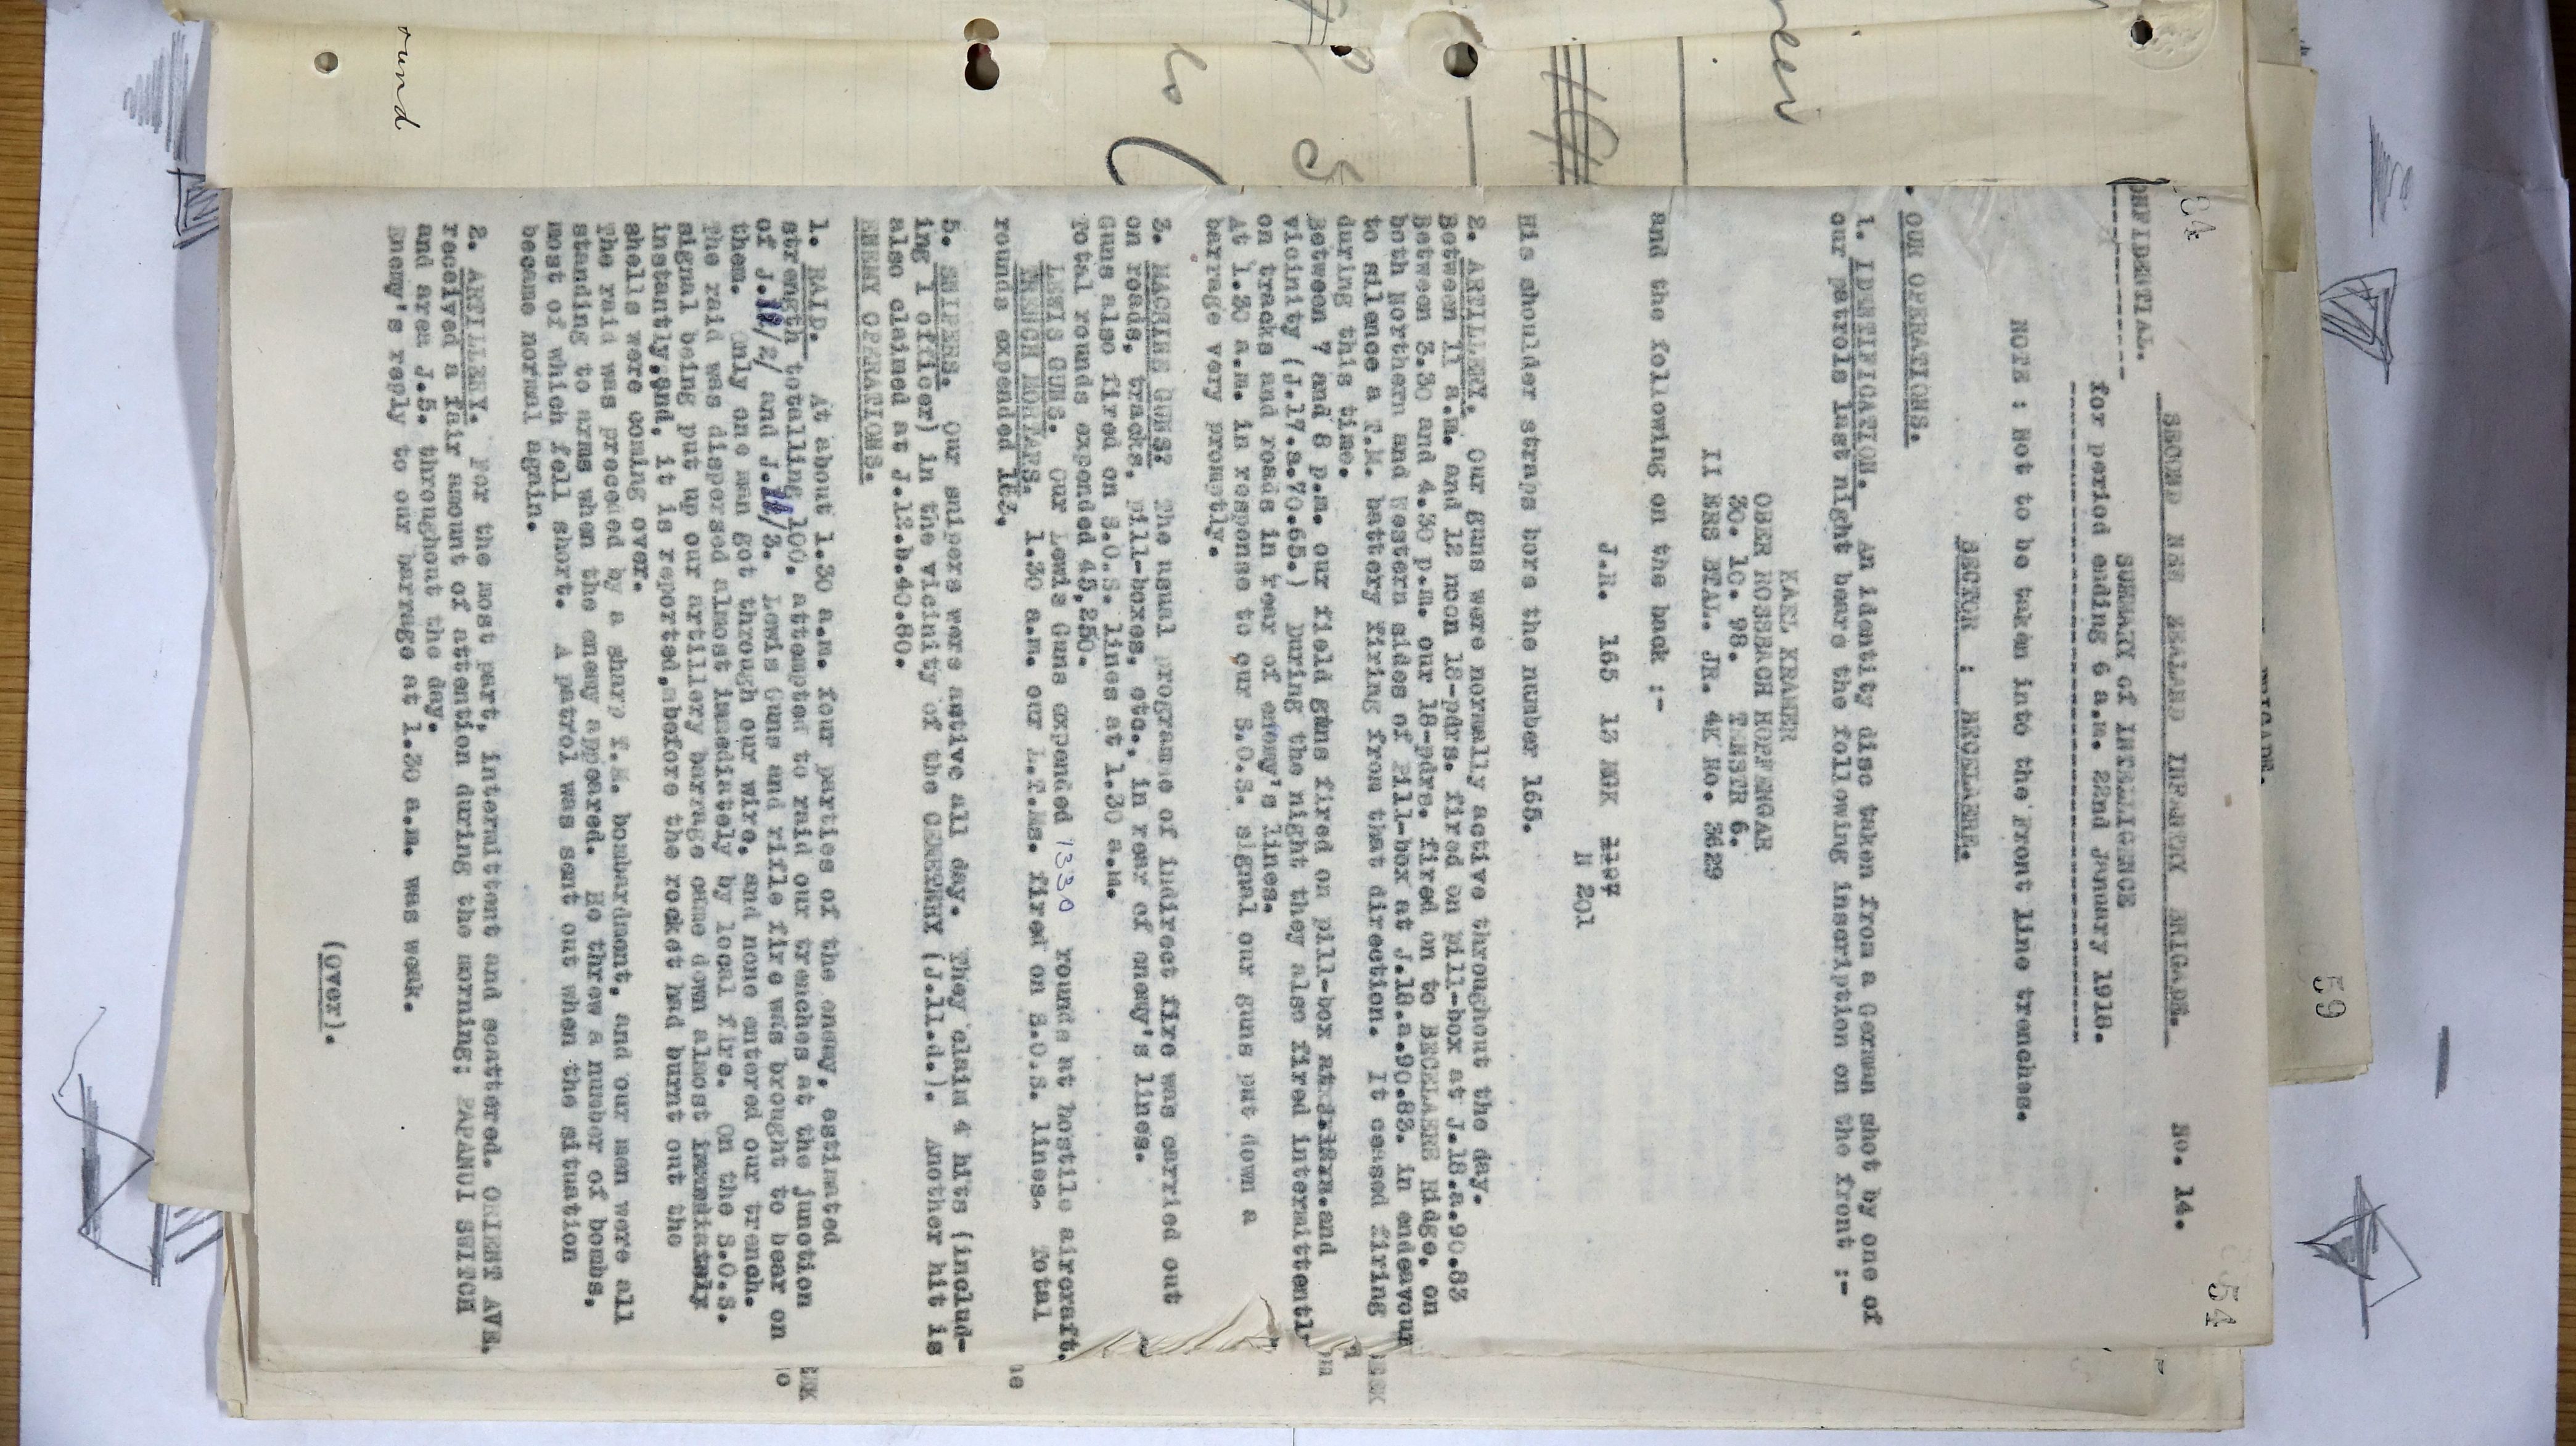 84
54
CONFIDENTIAL.
SECOND NEW ZEALAND INFANTRY BRIGADE. No. 14.
SUMMARY of INTELLIGENCE
for period ending 6 a.m. 22nd January 1918.
NOTE : Not to be taken into the Front Line trenches.
SECTOR : BECELAERE.
OUR OPERATIONS.
1. IDENTIFICATION. An identity disc taken from a German shot by one of
our patrols last night bears the following inscription on the front :-
KARL KRAMER
OBER ROSSBACH HOPFENGAR
30. 10. 98. TENSTR 6.
II ERS BTAL. JR. 4K No. 3629
and the following on the back :-
J.R. 165 13 MGK 1107
N 201
His shoulder straps bore the number 165.
2. ARTILLERY. Our guns were normally active throughout the day.
Between 11 a.m. and 12 noon 18-pdrs. fired on pill-box at J.18.a.90.83
Between 3.30 and 4.30 p.m. our 18-pdrs. fired on to BECELAERE Ridge, on
both Northern and Western sides of Pill-box at J.18.a.90.83. in endeavour
to silence a T.M. battery firing from that direction. It ceased firing
during this time.
Between 7 and 8 p.m. our field guns fired on pill-box and
vicinity (J.17.a.70.65.) During the night they also fired intermittently
on tracks and roads in rear of enemy's lines.
At 1.30 a.m. in response to our S.O.S. signal our guns put down a
barrage very promptly.
3. MACHINE GUNS? The usual programme of indirect fire was carried out
on roads, tracks, pill-boxes, etc., in rear of enemy's lines.
Guns also fired on S.O.S. lines at 1.30 a.m.
Total rounds expended 45,250.
LEWIS GUNS. Our Lewis Guns expended 1330 rounds at hostile aircraft.
TRENCH MORTARS. 1.30 a.m. our L.T.Ms. fired on S.O.S. lines. Total
rounds expended 163.
5. SNIPERS. Our snipers were active all day. They claim 4 hits (includ-
ing 1 officer) in the vicinity of the CEMETERY (J.11.d.). Another hit is
also claimed at J.12.b.40.80.
ENEMY OPARATIONS.
1. RAID. At about 1.30 a.m. four parties of the enemy, estimated
strength totalling 100. attempted to raid our trenches at the junction
of J. /2/ and J. /3. Lewis Guns and rifle fire was brought to bear on
them. Only one man got through our wire, and none entered our trench.
The raid was dispersed almost immediately by local fire. On the S.O.S.
signal being put up our artillery barrage came down almost
instantly,and, it is reported, before the rocket had burnt out the
shells were coming over.
The raid was preceded by a sharp T.M. bombardment, and our men were all
standing to arms when the enemy appeared. He threw a number of bombs,
most of which fell short. A patrol was sent out when the situation
became normal again.
2. ARTILLERY. For the most part, intermittent and scattered. ORIENT AVE.
received a fair amount of attention during the morning; PAPANUI SWITCH
and area J.5. throughout the day.
Enemy's reply to our barrage at 1.30 a.m. was weak.
(Over).
59
ound